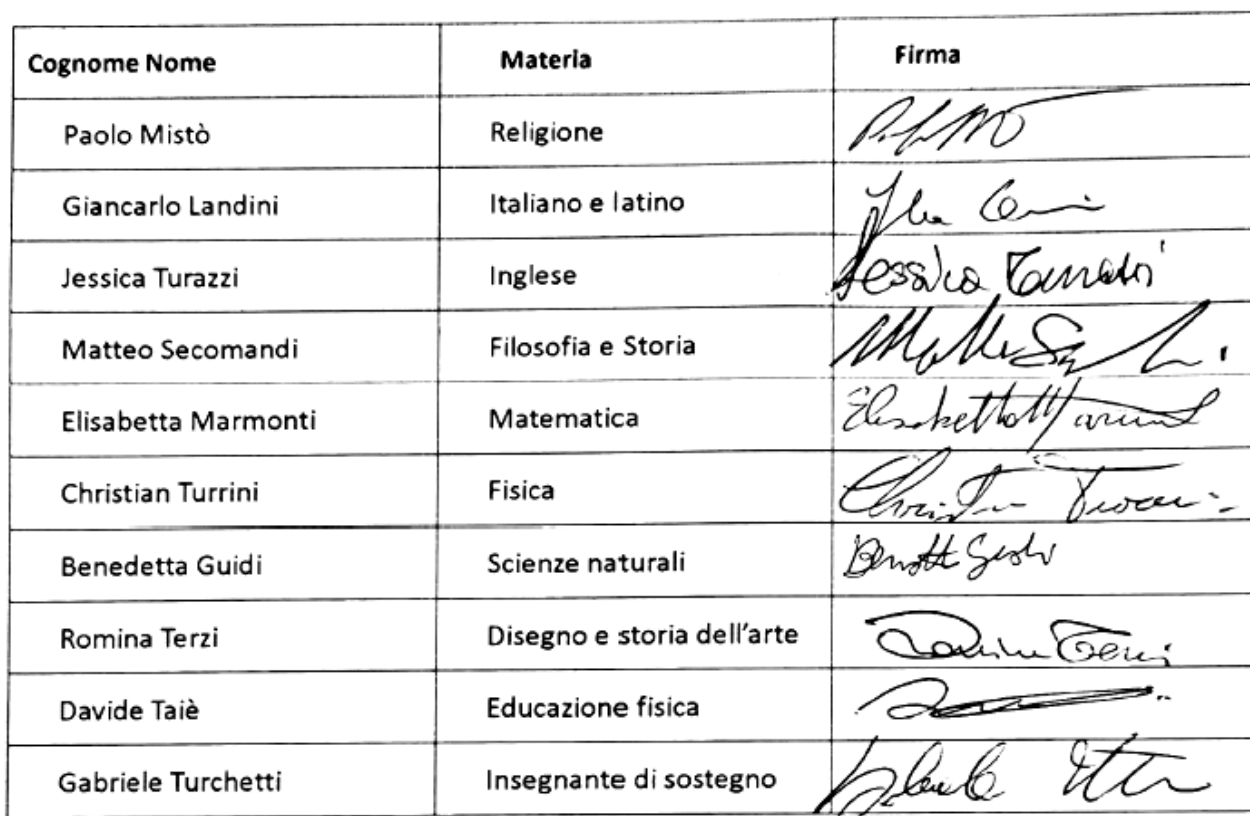 Cognome Nome Materia Firma
Paolo Mistò Religione
Giancarlo Landini Italiano e latino
Jessica Turazzi Inglese Jessica Turazzi
Matteo Secomandi Filosofia e Storia
Elisabetta Marmonti Matematica Elisabetta
Christian Turrini Fisica
Benedetta Guidi Scienze naturali
Romina Terzi Disegno e storia dell'arte
Davide Taiè Educazione fisica
Gabriele Turchetti Insegnante di sostegno